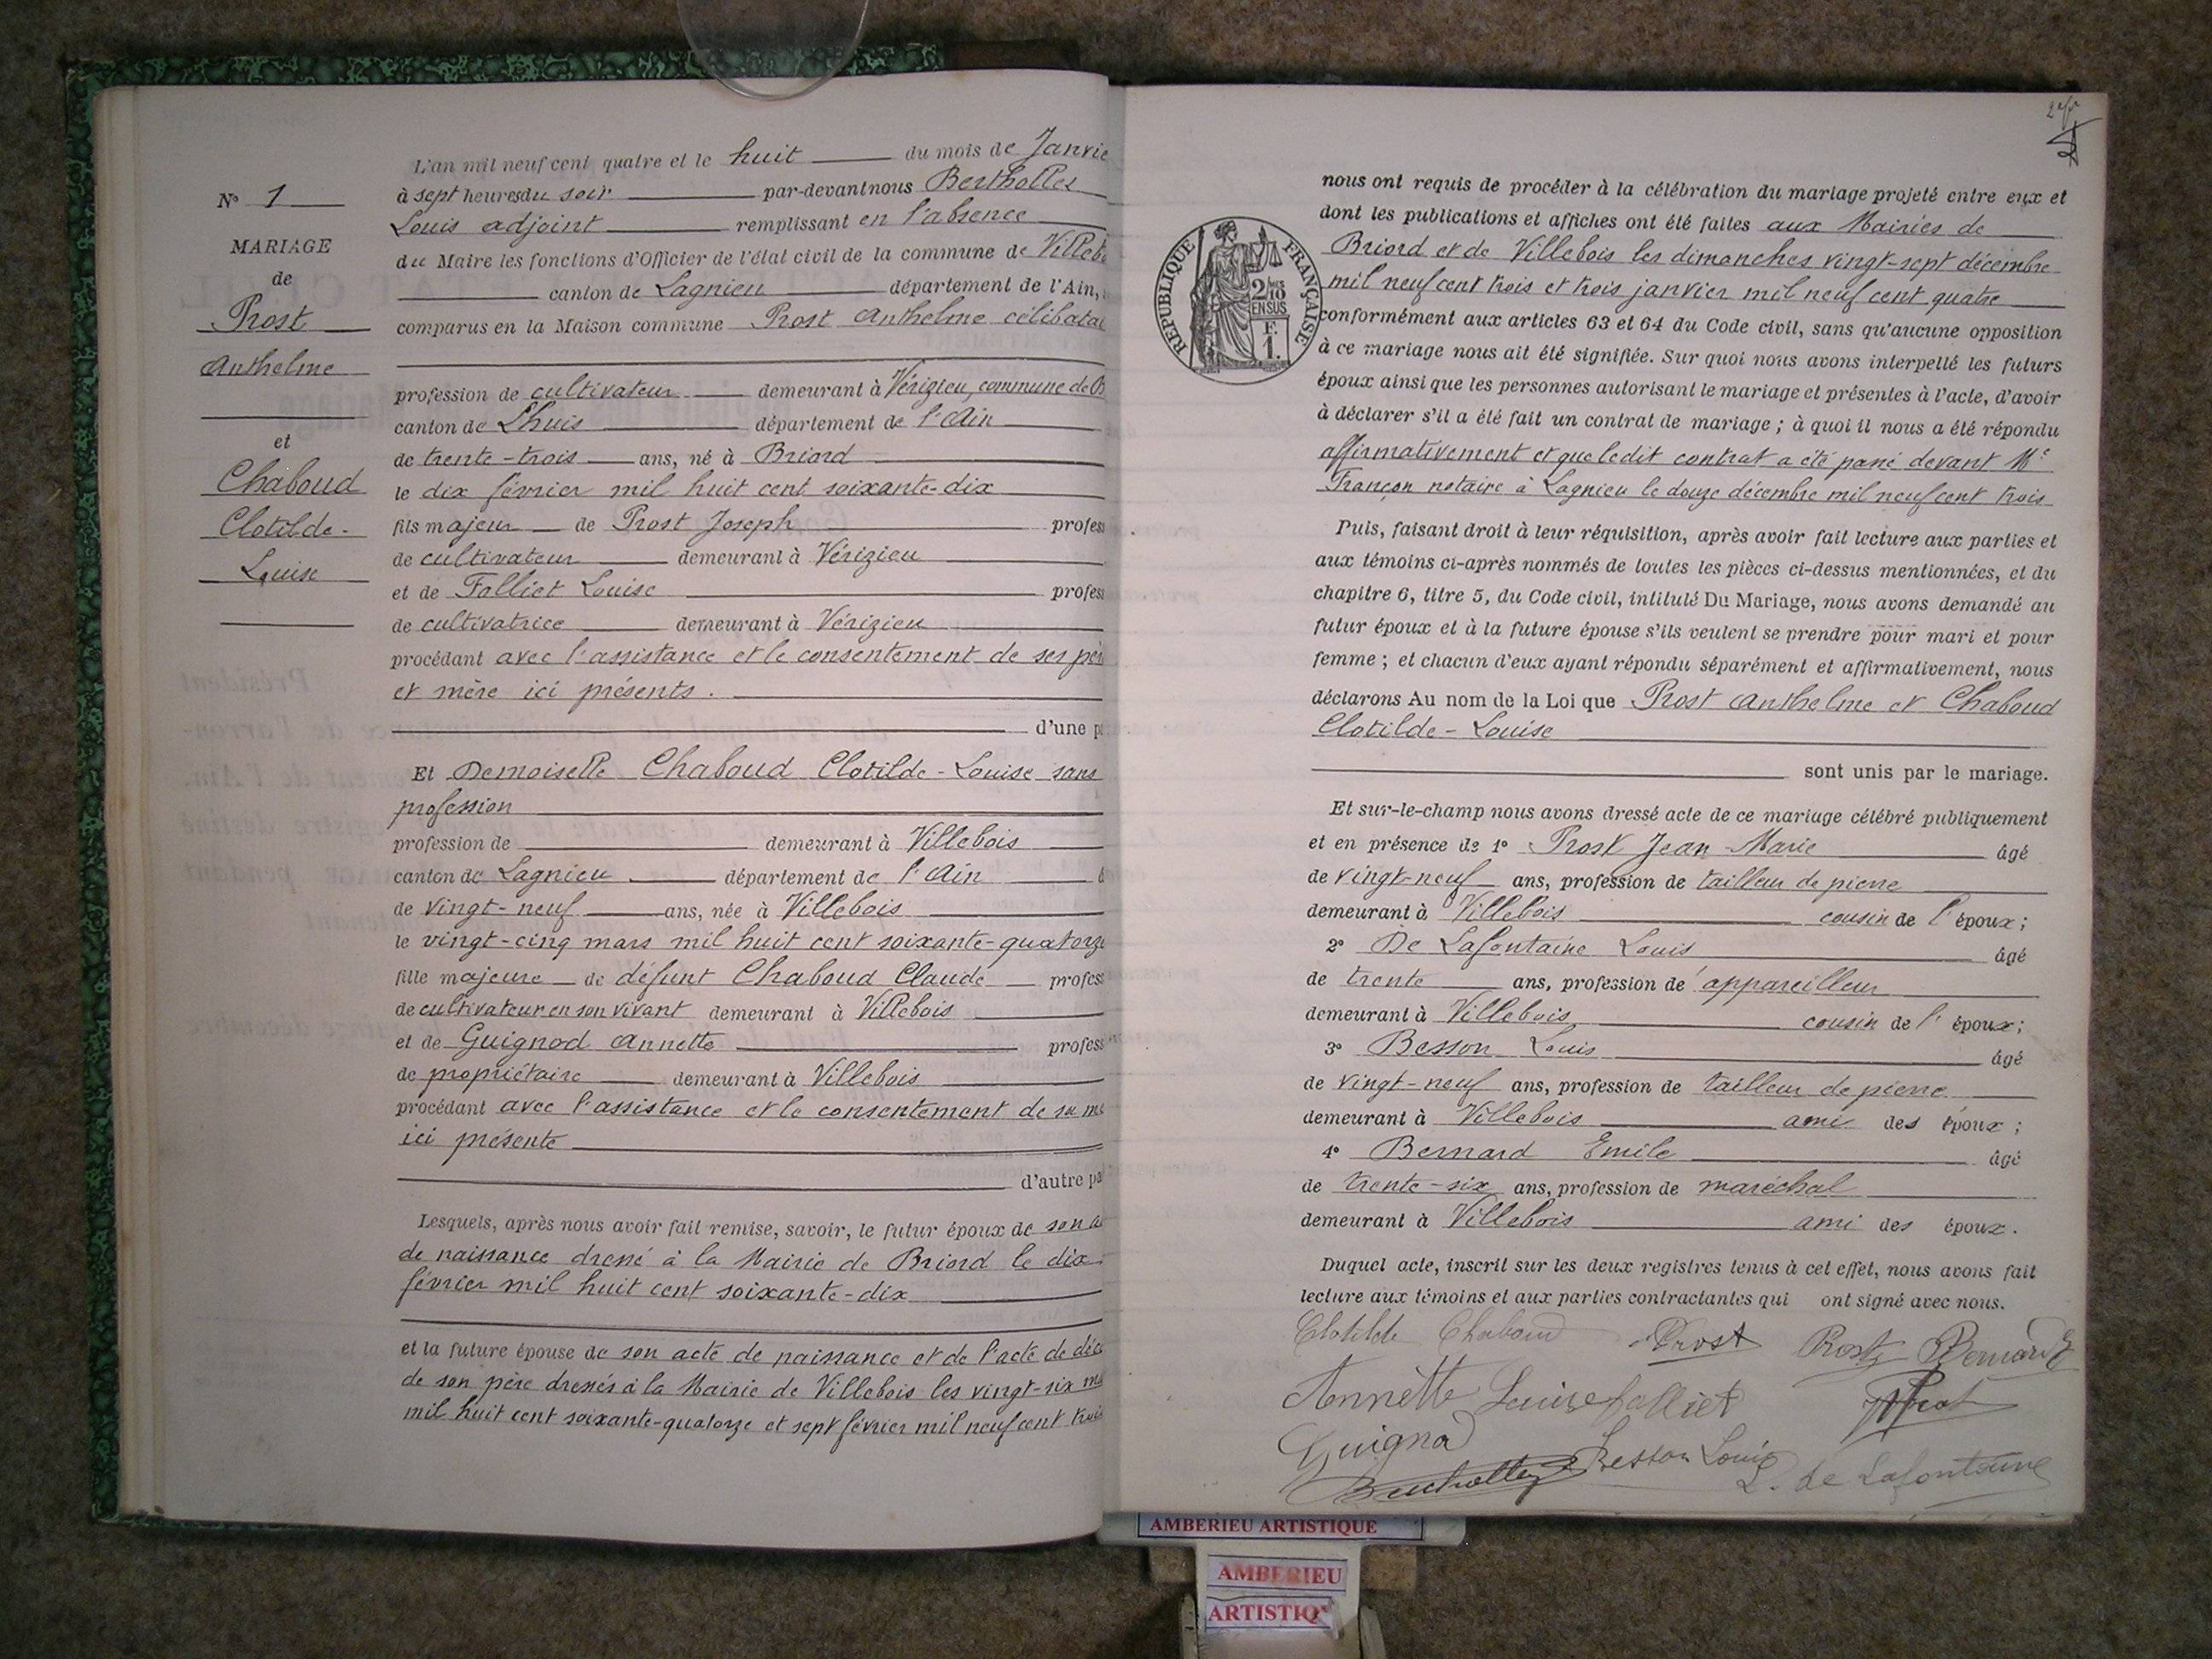 L'an mil neuf cent quatre et le huit du mois de Janvie
à sept heures du soir par-devant nous Bertholles
Louis adjoint remplissant en l'absence
du Maire les fonctions d'Officier de l'état civil de la commune de Villeb
canton de Lagnieu département de l'Ain,
comparus en la Maison commune Prost Anthelme célibatai
profession de cultivateur demeurant à Vérizieu, commune de B
canton de Lhuis département de l'Ain
de trente-trois ans, né à Briord
le dix février mil huit cent soixante-dix
fils majeur de Prost Joseph profess
de cultivateur demeurant à Vérizieu
et de Folliet Louise profess
de cultivatrice demeurant à Vérizieu
procédant avec l'assistance et le consentement de ses pèr
et mère ici présents.
d'une p
Et Demoiselle Chaboud Clotilde-Louise sans
profession
profession de demeurant à Villebois
canton de Lagnieu département de l'Ain
de vingt-neuf ans, née à Villebois
le vingt-cinq mars mil huit cent soixante-quatorze
fille majeure de défunt Chaboud Claude profess
de cultivateur en son vivant demeurant à Villebois
et de Guignod Annette profess
de propriétaire demeurant à Villebois
procédant avec l'assistance et le consentement de sa mè
ici présente
d'autre pa
Lesquels, après nous avoir fait remise, savoir, le futur époux de son a
de naissance dressé à la Mairie de Briord le dix
février mil huit cent soixante-dix
et la future épouse de son acte de naissance et de l'acte de déc
de son père dressés à la Mairie de Villebois les vingt-six ma
mil huit cent soixante-quatorze et sept février mil neuf cent trois
N° 1
MARIAGE
de
Prost
Anthelme
et
Chaboud
Clotilde-
Louise
nous ont requis de procéder à la célébration du mariage projeté entre eux et
dont les publications et affiches ont été faites aux Mairies de
Briord et de Villebois les dimanches vingt-sept décembre
mil neuf cent trois et trois janvier mil neuf cent quatre
conformément aux articles 63 et 64 du Code civil, sans qu'aucune opposition
à ce mariage nous ait été signifiée. Sur quoi nous avons interpellé les futurs
époux ainsi que les personnes autorisant le mariage et présentes à l'acte, d'avoir
à déclarer s'il a été fait un contrat de mariage ; à quoi il nous a été répondu
affirmativement et que ledit contrat a été passé devant Me
Françon notaire à Lagnieu le douze décembre mil neuf cent trois
Puis, faisant droit à leur réquisition, après avoir fait lecture aux parties et
aux témoins ci-après nommés de toutes les pièces ci-dessus mentionnées, et du
chapitre 6, titre 5, du Code civil, intitulé Du Mariage, nous avons demandé au
futur époux et à la future épouse s'ils veulent se prendre pour mari et pour
femme ; et chacun d'eux ayant répondu séparément et affirmativement, nous
déclarons Au nom de la Loi que Prost Anthelme et Chaboud
Clotilde-Louise
sont unis par le mariage.
Et sur-le-champ nous avons dressé acte de ce mariage célébré publiquement
et en présence de 1° Prost Jean-Marie âgé
de vingt-neuf ans, profession de tailleur de pierre
demeurant à Villebois cousin de l'époux ;
2° De Lafontaine Louis âgé
de trente ans, profession d'appareilleur
demeurant à Villebois cousin de l'époux ;
3° Besson Louis âgé
de vingt-neuf ans, profession de tailleur de pierre
demeurant à Villebois ami des époux ;
4° Bernard Emile âgé
de trente-six ans, profession de maréchal
demeurant à Villebois ami des époux.
Duquel acte, inscrit sur les deux registres tenus à cet effet, nous avons fait
lecture aux témoins et aux parties contractantes qui ont signé avec nous.
Clotilde Chaboud Prost Prost Bernard E
Annette Louise Folliet Prost
Guignod
Bertholles Besson Louis L. de Lafontaine
RÉPUBLIQUE FRANÇAISE
2/10 EN SUS
F. 1.
AMBERIEU ARTISTIQUE
AMBERIEU
ARTISTIQ